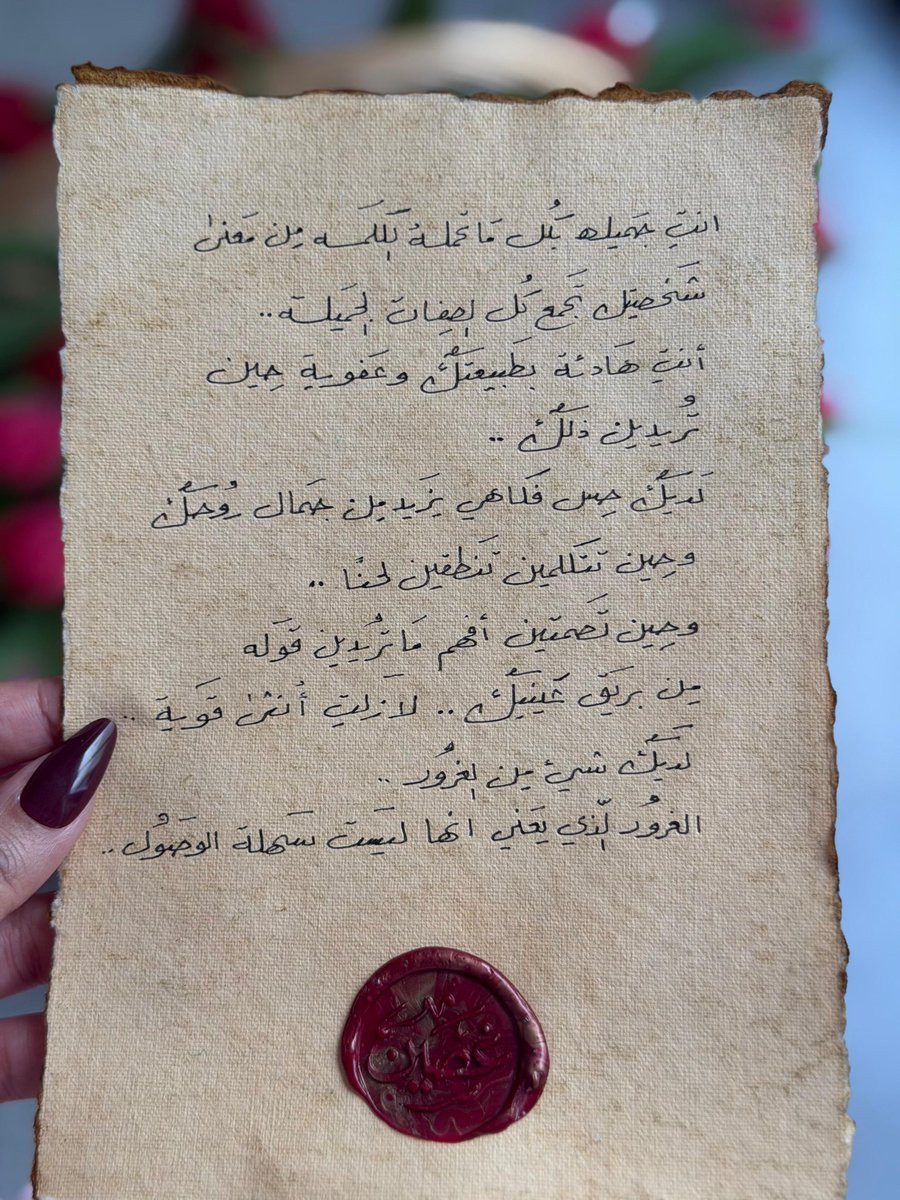 انتِ جَميله بَكُل مَا تحملة الكَلمَه مِن مَعنىٰ
شَخصيتك تَجمع كُل الصِفات الجَميلة..
أنتِ هَادئة بطَبيعتكُ وعَفوية حِين
تُريدين ذلكُ ..
لَديكُ حِس فَكاهي يزَيد من جَمال رُوحكُ
وحِين تتَكلمين تَنطقين لحنًا ..
وحِين تَصمتين أفهم مَاتُريدين قَوله
مِن بريَق عَينيكُ .. لازَلتِ أُنثىٰ قَوية ..
لَديكُ شيء من الغرُور ..
الغرُور الّذي يعَني انها ليسَت سَهلة الوصَوُل ..